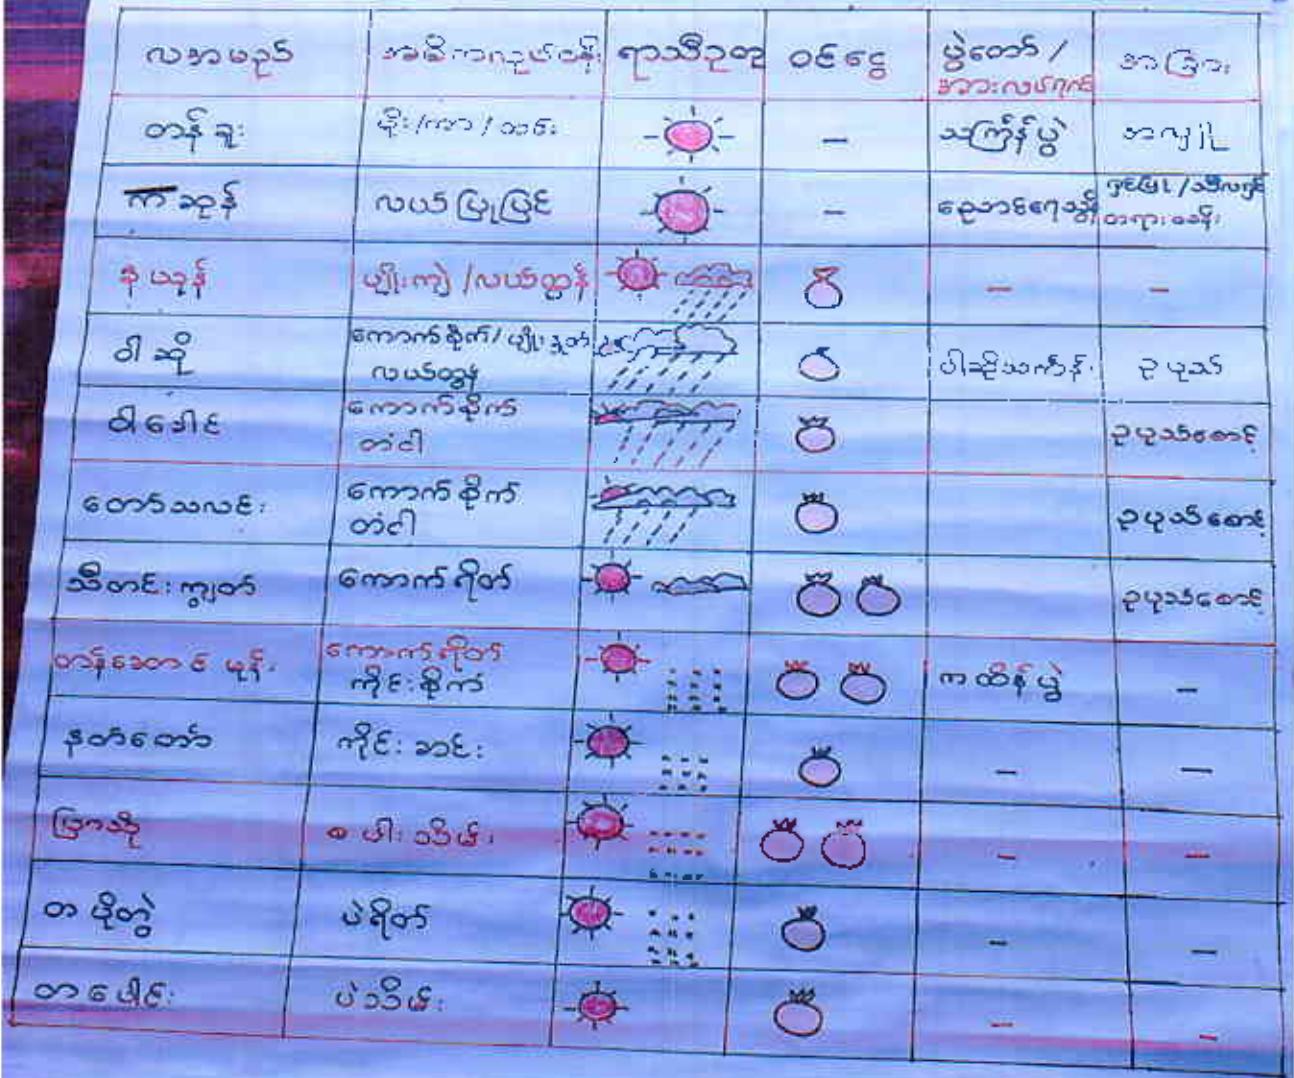 လအမည် အဓိကလုပ်ငန်း ရာသီဥတု ဝင်ငွေ ပွဲတော် / အားလပ်ရက် အခြား
တန်ခူး မိုး / ကာ / သစ်း – သင်္ကြန်ပွဲ အလှူ
ကဆုန် လယ်ပြုပြင် – ညောင်ရေသွန် ရှင်ပြု / သီလရှင် တရားစခန်း
နယုန် ပျိုးကျဲ / လယ်ထွန် – –
ဝါဆို ကောက်စိုက် / ပျိုးနှုတ်
လယ်ထွန် ဝါဆိုသင်္ကန်း ဥပုသ်
ဝါခေါင် ကောက်စိုက်
တံငါ ဥပုသ်စောင့်
တော်သလင်း ကောက်စိုက်
တံငါ ဥပုသ်စောင့်
သီတင်းကျွတ် ကောက်ရိတ် ဥပုသ်စောင့်
တန်ဆောင်မုန်း ကောက်ရိတ်
ကိုင်းစိုက် ကထိန်ပွဲ –
နတ်တော် ကိုင်းဆင်း – –
ပြာသို စပါးသိမ်း – –
တပို့တွဲ ပဲရိတ် – –
တပေါင်း ပဲသိမ်း – –